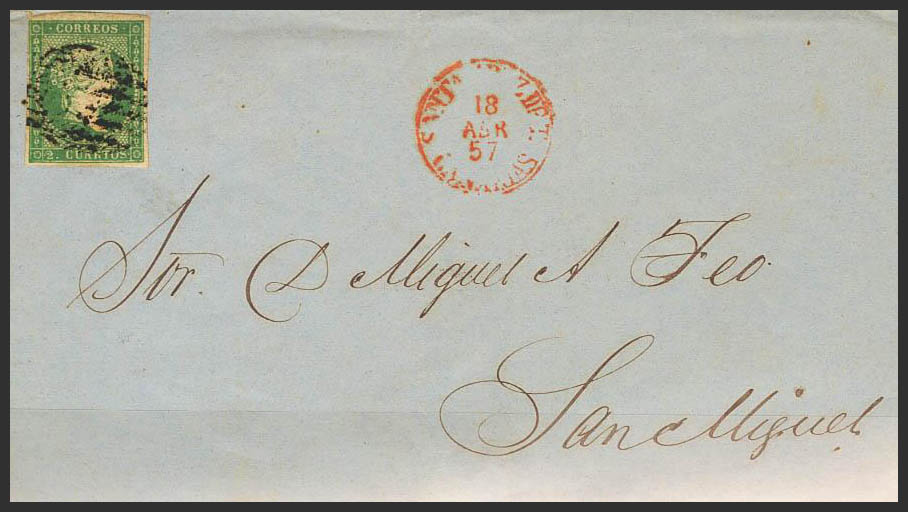 CORREOS
2. CUARTOS
18
ABR
57
Sor. D Miguel A Feo
San Miguel